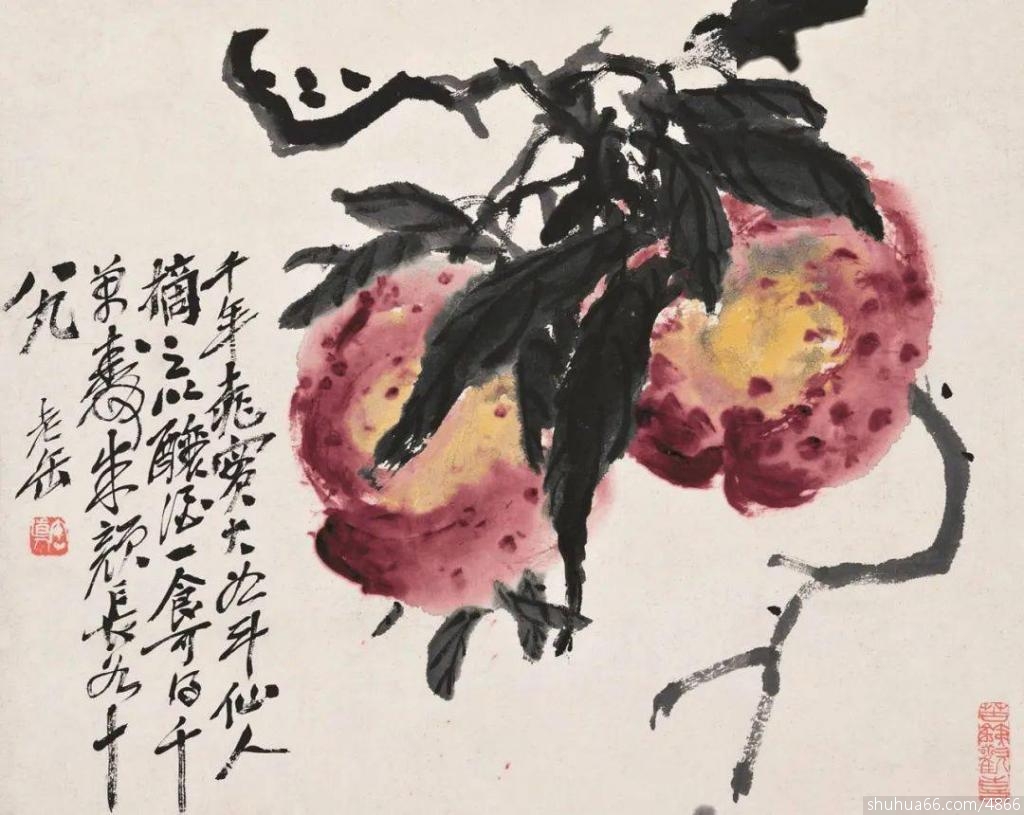 千年桃實大如斗仙人
摘之以釀酒一食可得千
萬壽朱顏長如十
八九
老缶
苦鐵歡喜
shuhua66.com/4866